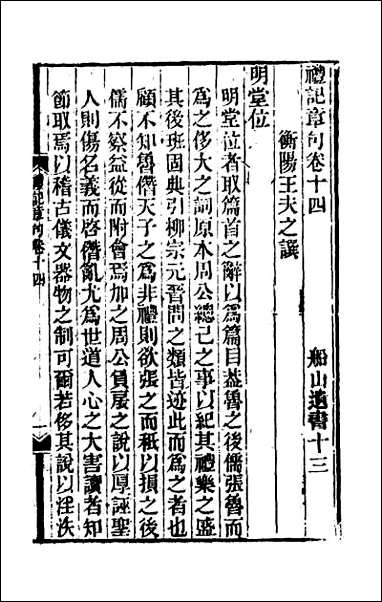 禮記章句卷十四
船山遺書十三
衡陽王夫之譔
明堂位
明堂位者取篇首之辭以爲篇目蓋魯之後儒張魯而
爲之侈大之詞原本周公總己之事以紀其禮樂之盛
其後班固典引柳宗元晉問之類皆迹此而爲之者也
顧不知魯僭天子之爲非禮則欲張之而秖以損之後
儒不察益從而附會焉加之周公負扆之說以厚誣聖
人則傷名義而啓僭亂尤爲世道人心之大害讀者知
節取焉以稽古儀文器物之制可爾若侈其說以淫泆
禮記章句卷十四